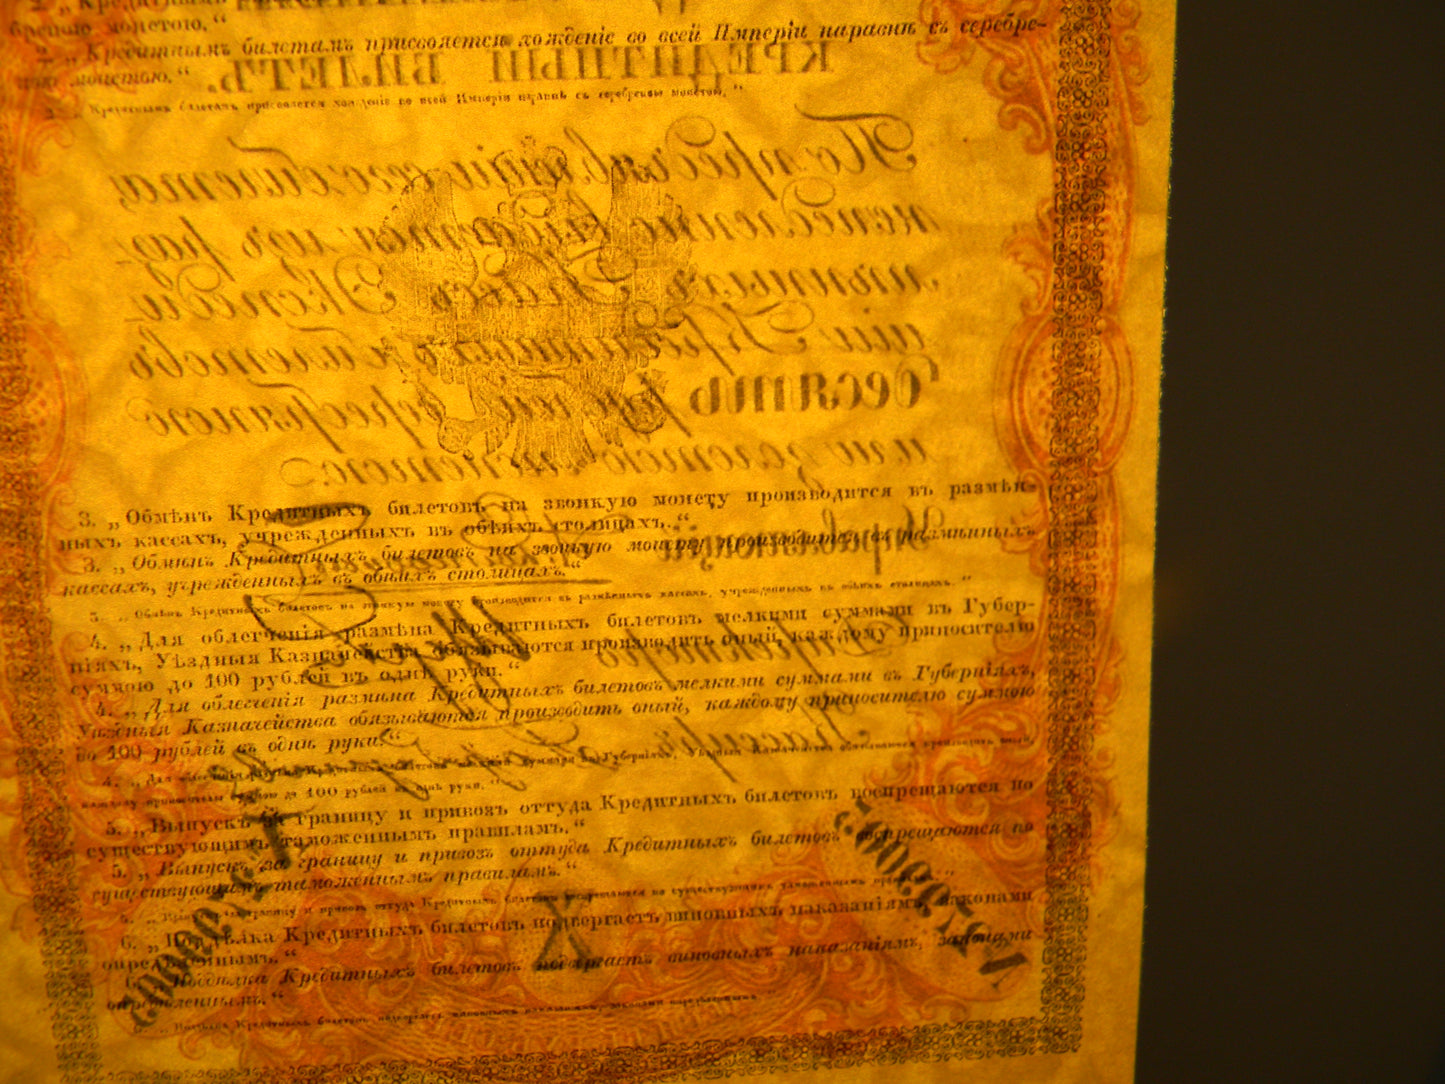 2. „Кредитнымъ
бреною монетою.“
2. „Кредитнымъ билетамъ присвояется хожденіе во всей Имперіи наравнѣ съ серебре-
ною монетою.“
КРЕДИТНЫЙ БИЛЕТЪ.
2. „Кредитнымъ билетамъ присвояется хожденіе во всей Имперіи наравнѣ съ серебреною монетою.“
По предъявленіи сего билета,
немедленно выдается изъ раз-
мѣнныхъ кассъ Экспеди-
ціи Кредитныхъ билетовъ
десять рублей серебряною
или золотою монетою.
3. „Обмѣнъ Кредитныхъ билетовъ на звонкую монету производится въ размѣн-
ныхъ кассахъ, учрежденныхъ въ обѣихъ столицахъ.“
Управляющій
3. „Обмѣнъ Кредитныхъ билетовъ на звонкую монету производится въ размѣнныхъ
кассахъ, учрежденныхъ въ обѣихъ столицахъ.“
3. „Обмѣнъ Кредитныхъ билетовъ на звонкую монету производится въ размѣнныхъ кассахъ, учрежденныхъ въ обѣихъ столицахъ.“
4. „Для облегченія размѣна Кредитныхъ билетовъ мелкими суммами въ Губер-
ніяхъ, Уѣздныя Казначейства обязываются производить оный, каждому приносителю
суммою до 100 рублей въ однѣ руки.“
Директоръ
4. „Для облегченія размѣна Кредитныхъ билетовъ мелкими суммами въ Губерніяхъ,
Уѣздныя Казначейства обязываются производить оный, каждому приносителю суммою
до 100 рублей въ однѣ руки.“
Кассиръ
4. „Для облегченія размѣна Кредитныхъ билетовъ мелкими суммами въ Губерніяхъ, Уѣздныя Казначейства обязываются производить оный,
каждому приносителю суммою до 100 рублей въ однѣ руки.“
5. „Выпускъ за границу и привозъ оттуда Кредитныхъ билетовъ воспрещаются по
существующимъ таможеннымъ правиламъ.“
5. „Выпускъ за границу и привозъ оттуда Кредитныхъ билетовъ воспрещаются по
существующимъ таможеннымъ правиламъ.“
5. „Выпускъ за границу и привозъ оттуда Кредитныхъ билетовъ воспрещаются по существующимъ таможеннымъ правиламъ.“
6. „Поддѣлка Кредитныхъ билетовъ подвергаетъ виновныхъ наказаніямъ, законами
опредѣленнымъ.“
6. „Поддѣлка Кредитныхъ билетовъ подвергаетъ виновныхъ наказаніямъ, законами
опредѣленнымъ.“
6. „Поддѣлка Кредитныхъ билетовъ подвергаетъ виновныхъ наказаніямъ, законами опредѣленнымъ.“